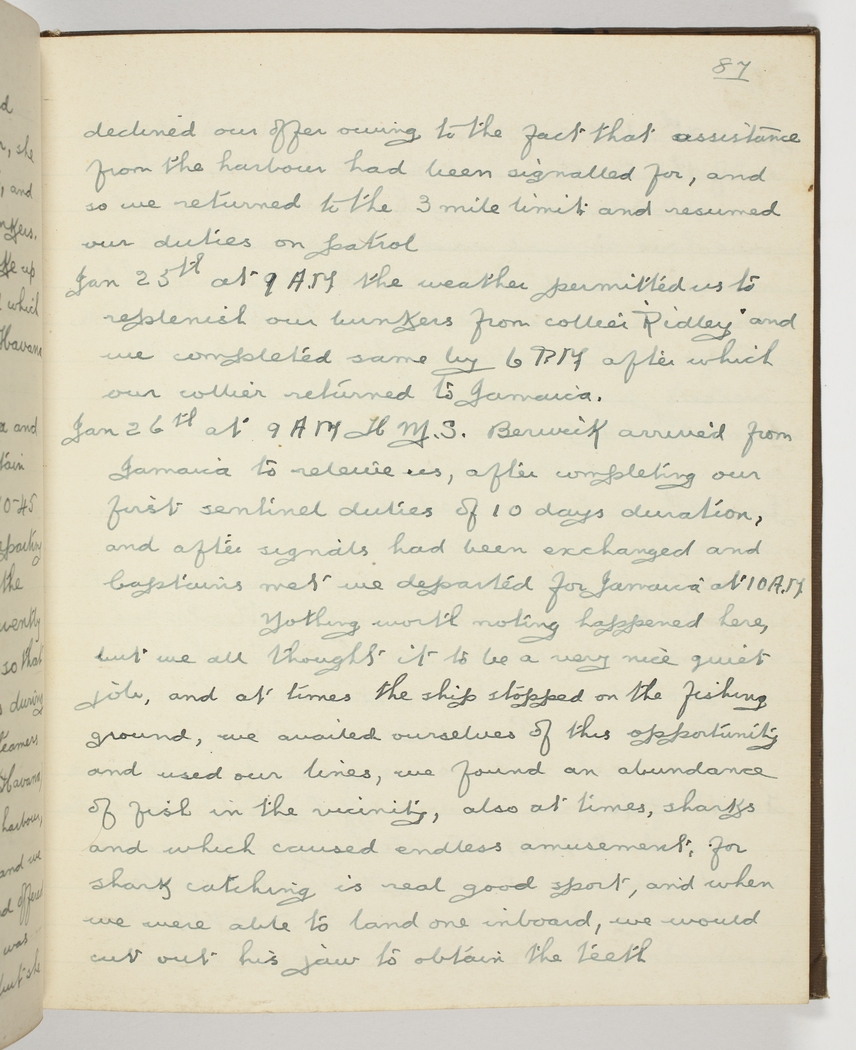 87
declined our offer owing to the fact that assistance
from the harbour had been signalled for, and
so we returned to the 3 mile limit and resumed
our duties on patrol
Jan 25th at 9 AM the weather permitted us to
replenish our bunkers from collier "Ridley" and
we completed same by 6 PM after which
our collier returned to Jamaica.
Jan 26th at 9 AM H.M.S. Berwick arrived from
Jamaica to releive us, after completing our
first sentinel duties of 10 days duration,
and after signals had been exchanged and
Captains met we departed for Jamaica at 10 A.M
Nothing worth noting happened here,
but we all thought it to be a very nice quiet
job, and at times the ship stopped on the fishing
ground, we availed ourselves of this opportunity
and used our lines, we found an abundance
of fish in the vicinity, also at times, sharks
and which caused endless amusement, for
shark catching is real good sport, and when
we were able to land one inboard, we would
cut out his jaw to obtain the teeth